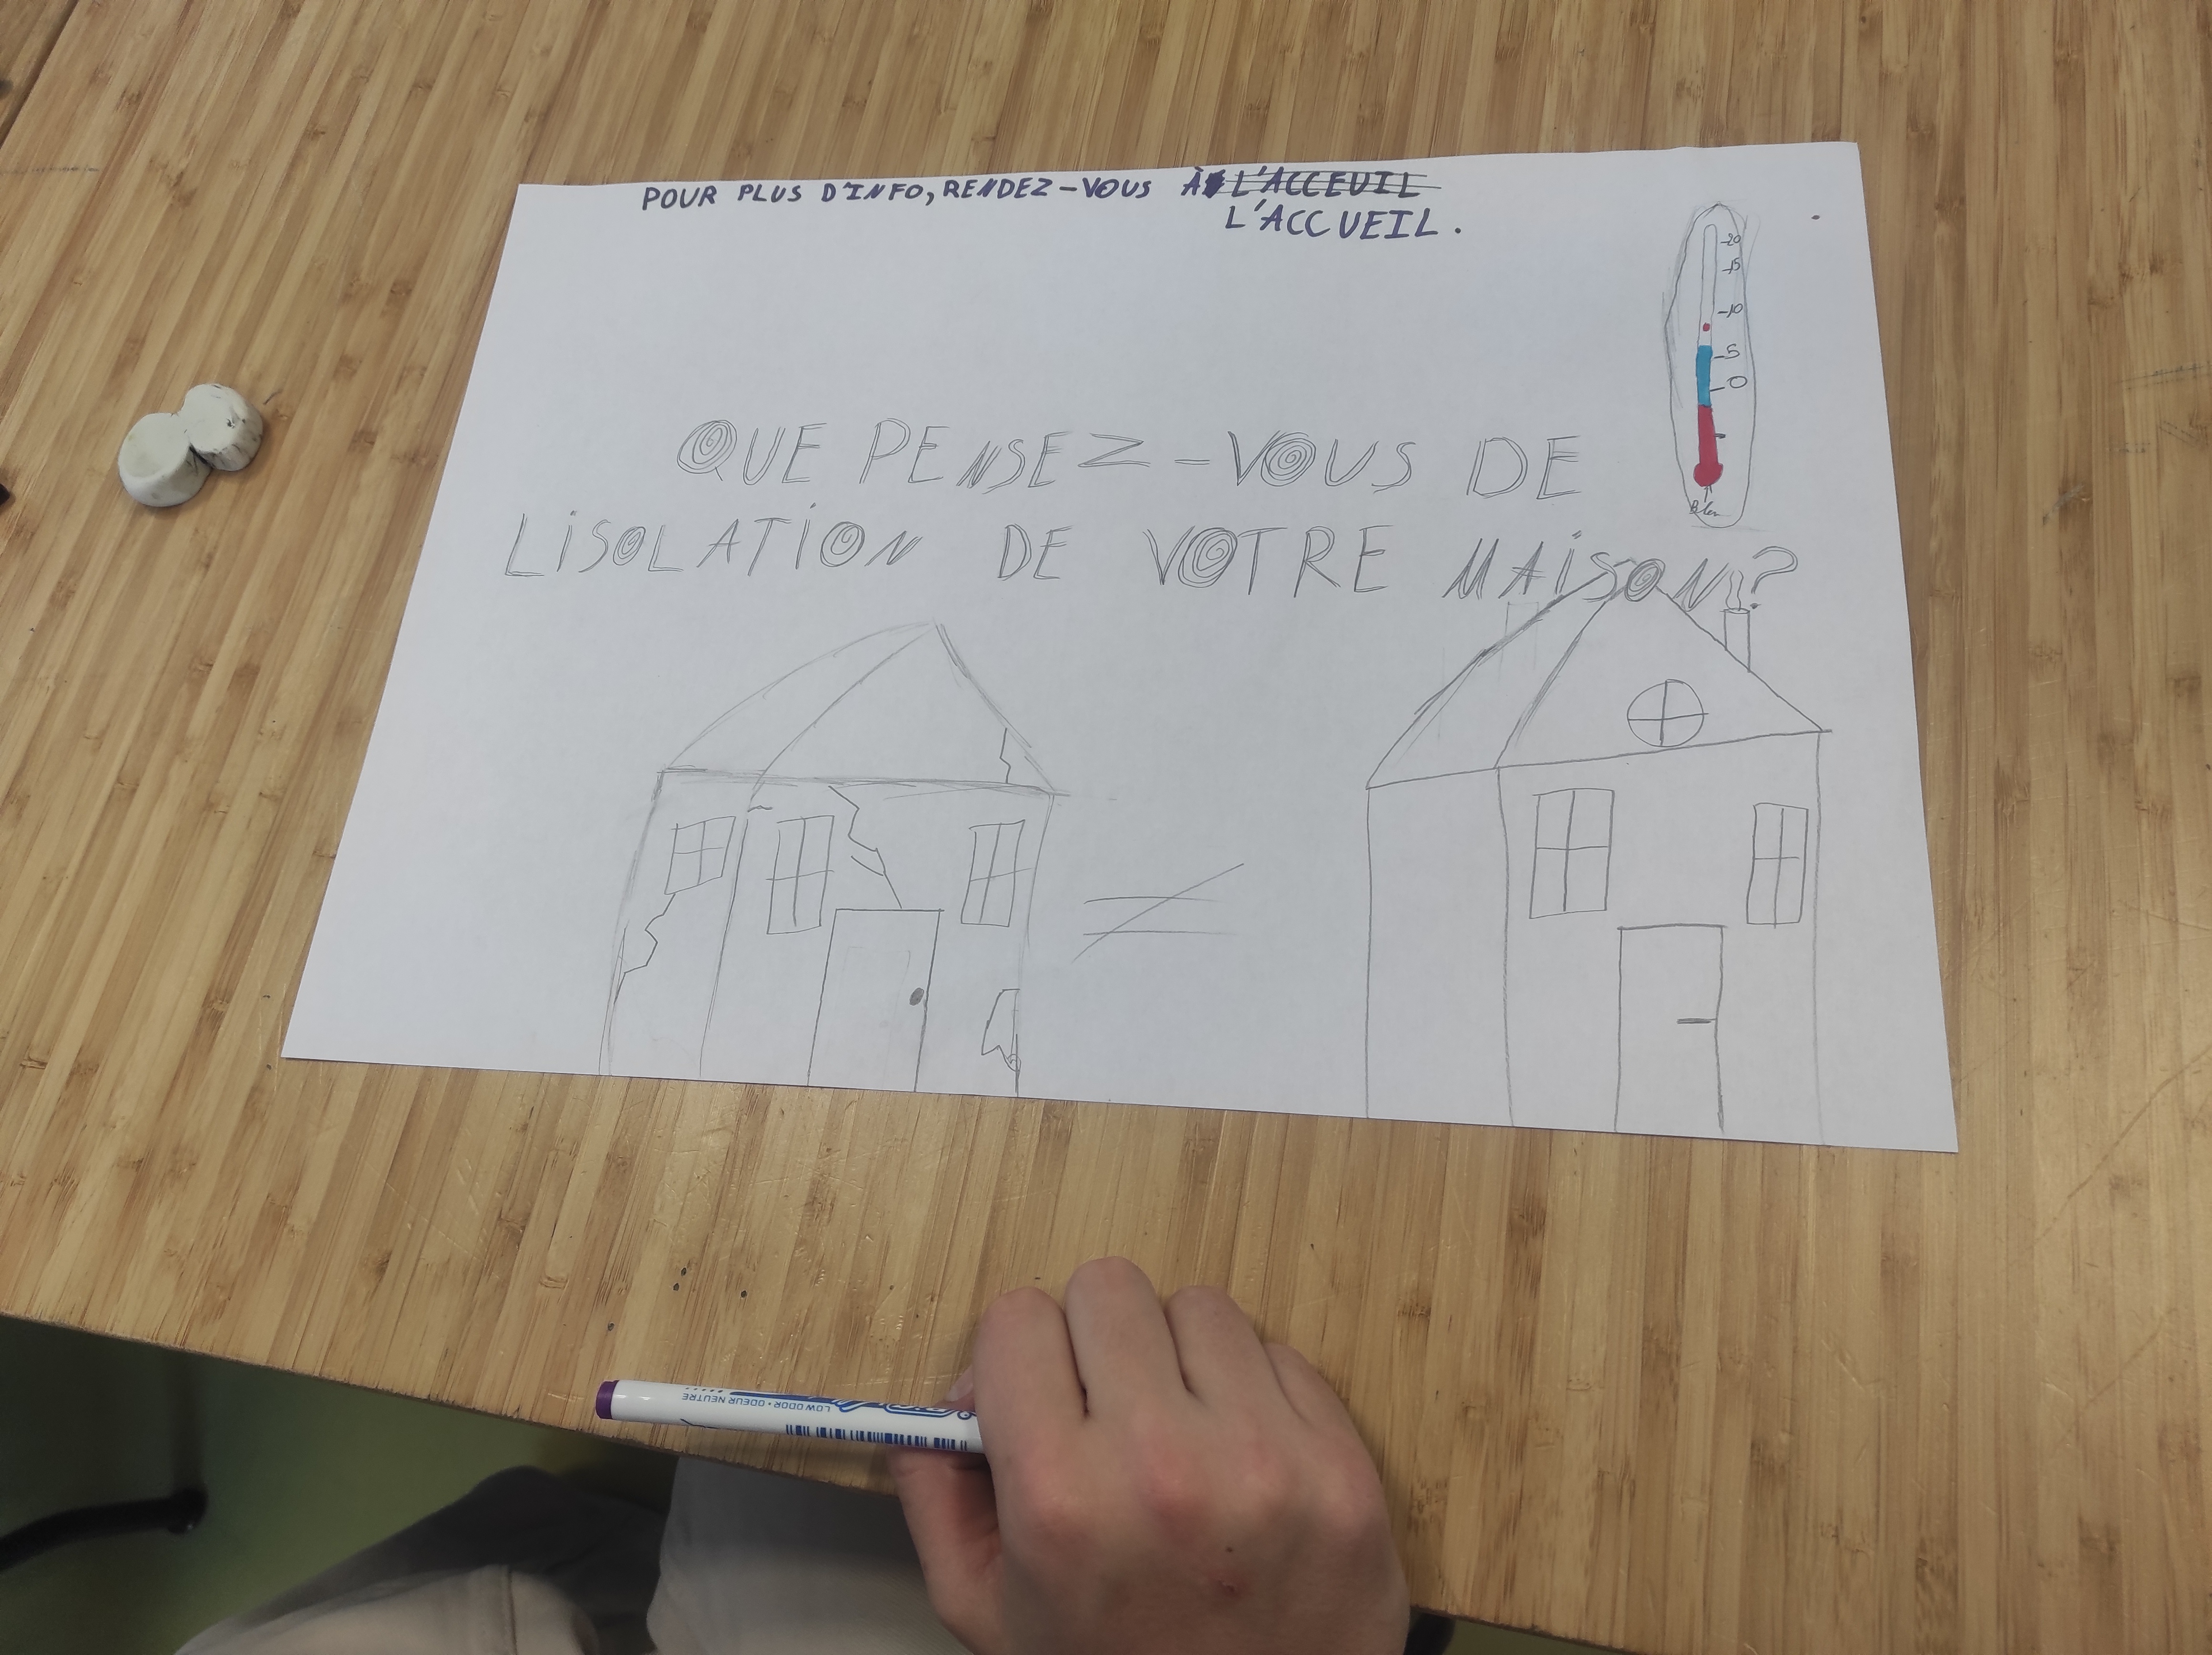 POUR PLUS D'INFO, RENDEZ-VOUS À L'ACCEUIL
L'ACCUEIL.
-20
-15
-10
-5
-0
QUE PENSEZ-VOUS DE
LISOLATION DE VOTRE MAISON?
Bleu
LOW ODOR • ODEUR NEUTRE